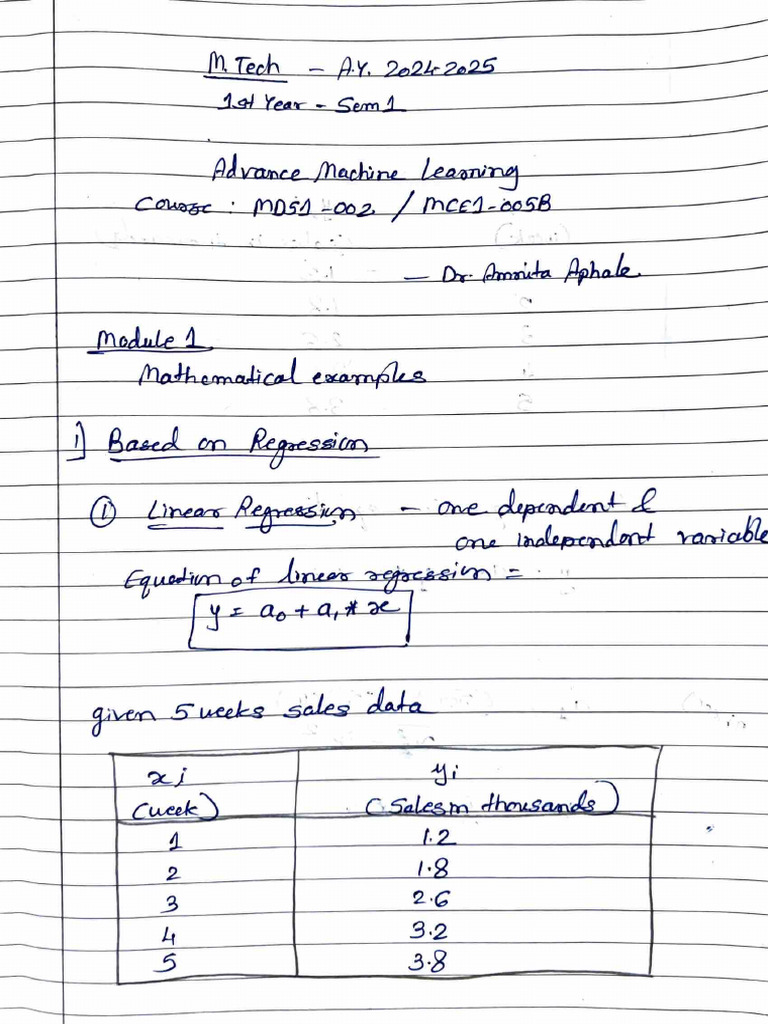 M.Tech - A.Y. 2024-2025
1st Year - Sem 1
Advance Machine Learning
Course : MDS1-002 / MCE1-005B
- Dr. Amruta Aphale
Module 1
Mathematical examples
i] Based on Regression
① Linear Regression - one dependent &
one independent variable
Equation of linear regression =
y = a₀ + a₁ * x
given 5 weeks sales data
xi yi
(week) (Sales in thousands)
1 1.2
2 1.8
3 2.6
4 3.2
5 3.8